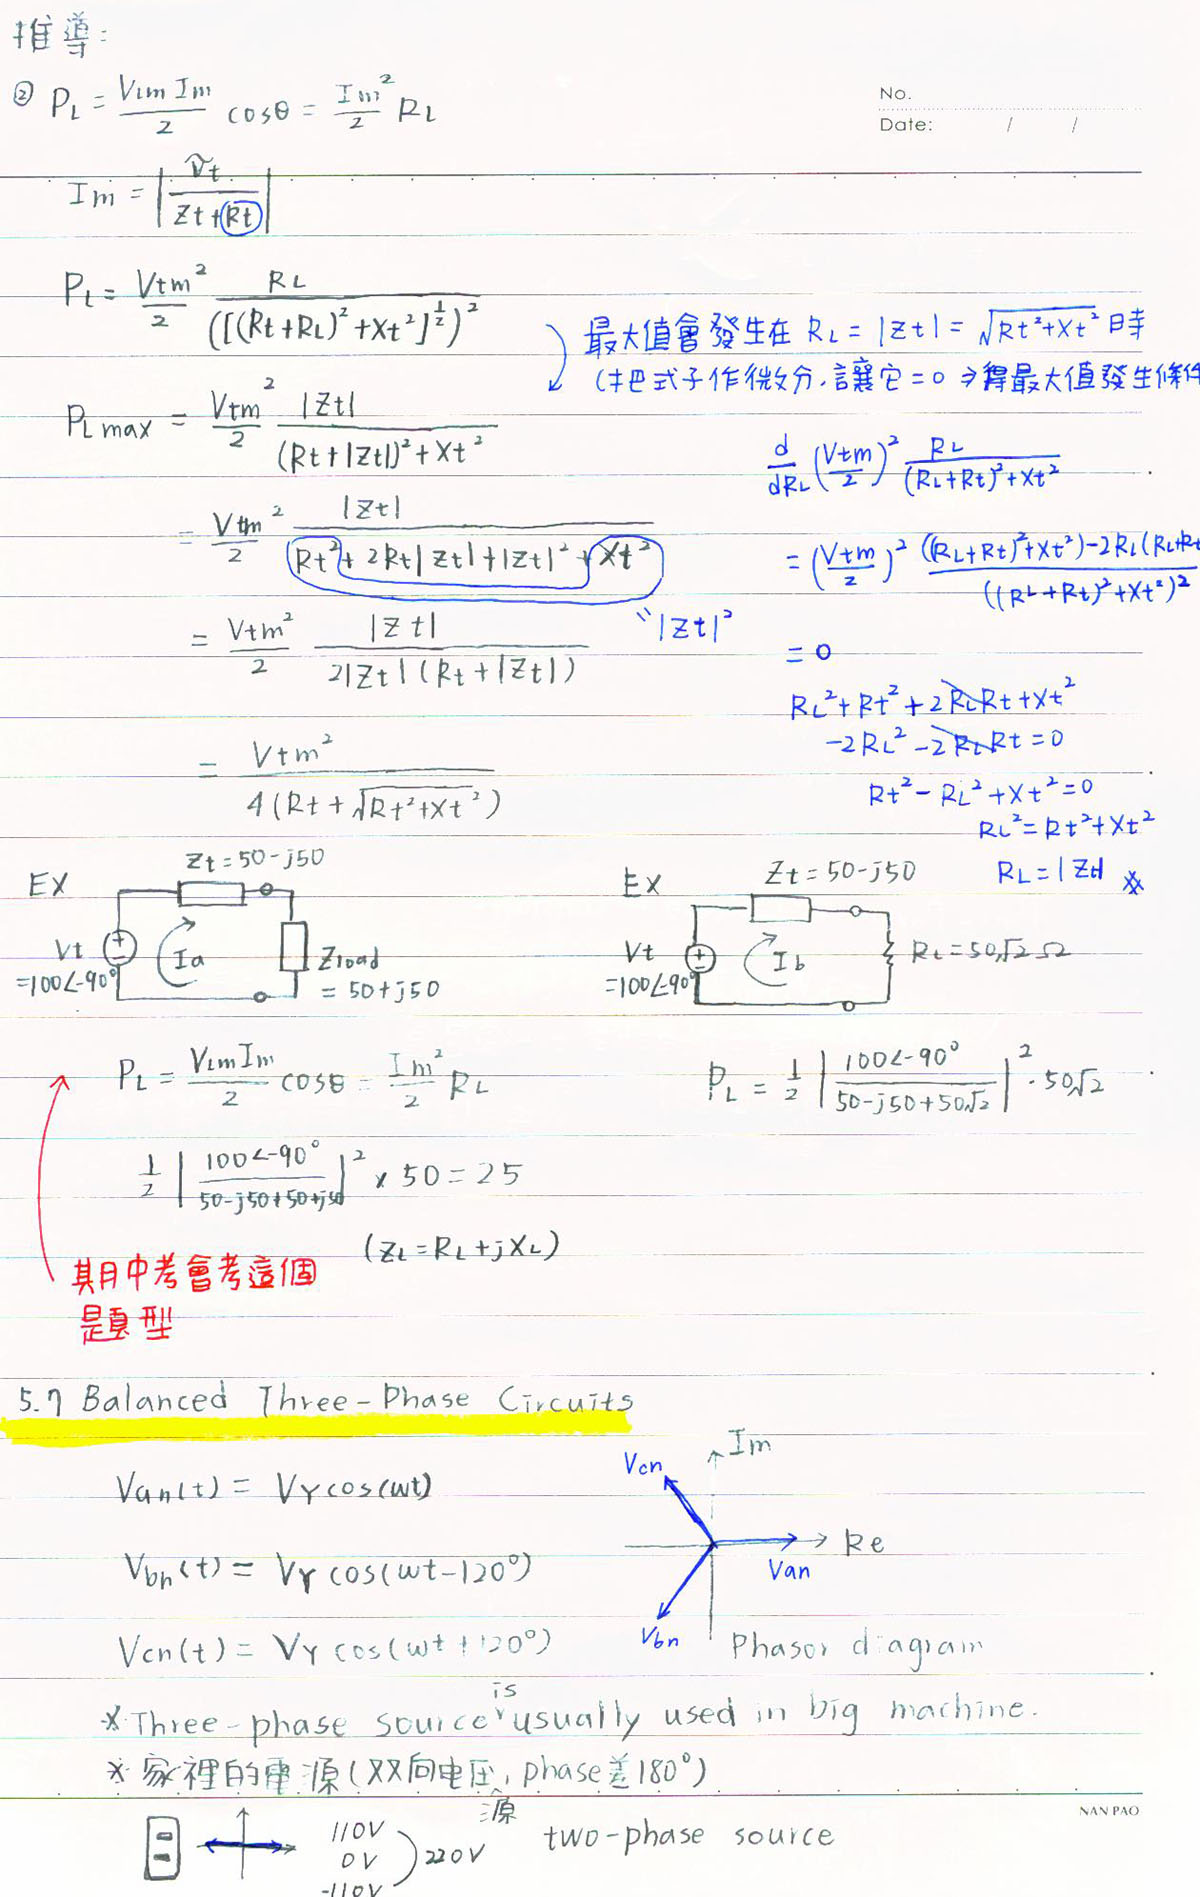 推導:
② P_L = V_Lm Im / 2 cosθ = Im² / 2 R_L
No.
Date: / /
Im = | Ṽt / Zt+Rt |
P_L = Vtm² / 2 · R_L / ([(Rt+R_L)²+Xt²]^½)²
最大值會發生在 R_L = |Zt| = √Rt²+Xt² 時
(把式子作微分,讓它=0 ⇒得最大值發生條件
P_L max = Vtm² / 2 · |Zt| / (Rt+|Zt|)²+Xt²
d/dR_L (Vtm/2)² R_L / (R_L+Rt)²+Xt²
= Vtm² / 2 · |Zt| / Rt²+2Rt|Zt|+|Zt|²+Xt²
= (Vtm/2)² ((R_L+Rt)²+Xt²)-2R_L(R_L+Rt / ((R_L+Rt)²+Xt²)²
"|Zt|²
= Vtm² / 2 · |Zt| / 2|Zt|(Rt+|Zt|)
= 0
R_L²+Rt²+2R_LRt+Xt²
-2R_L²-2R_LRt=0
= Vtm² / 4(Rt+√Rt²+Xt²)
Rt²-R_L²+Xt²=0
R_L²=Rt²+Xt²
R_L=|Zt| ※
EX
Zt=50-j50
Vt
=100∠-90°
Ia
Zload
= 50+j50
EX
Zt=50-j50
Vt
=100∠-90°
Ib
R_L=50√2Ω
P_L = V_Lm Im / 2 cosθ = Im² / 2 R_L
P_L = 1/2 | 100∠-90° / 50-j50+50√2 |² · 50√2
1/2 | 100∠-90° / 50-j50+50+j50 |² × 50 = 25
(Z_L=R_L+jX_L)
期中考會考這個
題型
5.7 Balanced Three-Phase Circuits
Van(t) = V_Y cos(wt)
Vbn(t) = V_Y cos(wt-120°)
Vcn(t) = V_Y cos(wt+120°)
Im
Vcn
Re
Van
Vbn
Phasor diagram
is
* Three-phase source usually used in big machine.
* 家裡的電源(双向电压, phase差180°)
源
NAN PAO
110V
0V
-110V
220V
two-phase source